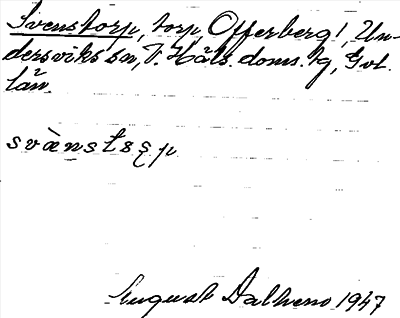 Svenstorp, torp, Offerberg!, Un-
dersviks sn, N. Häls. doms. tg, Gvl.
län.
svænstɞʂp
August Dalhemo 1947